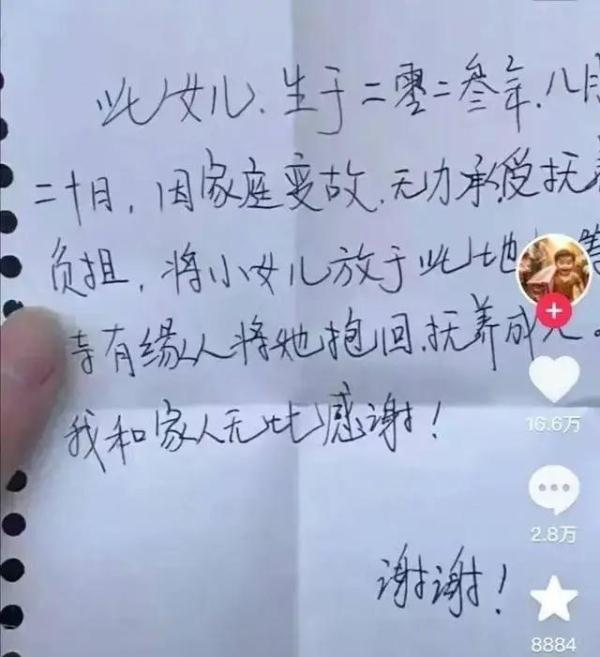 此女儿.生于二零二叁年.八月
二十日，因家庭变故.无力承受抚养
负担，将小女儿放于此地等
有缘人将她抱回.抚养成人。
我和家人无比感谢！
谢谢！
16.6万
2.8万
8884